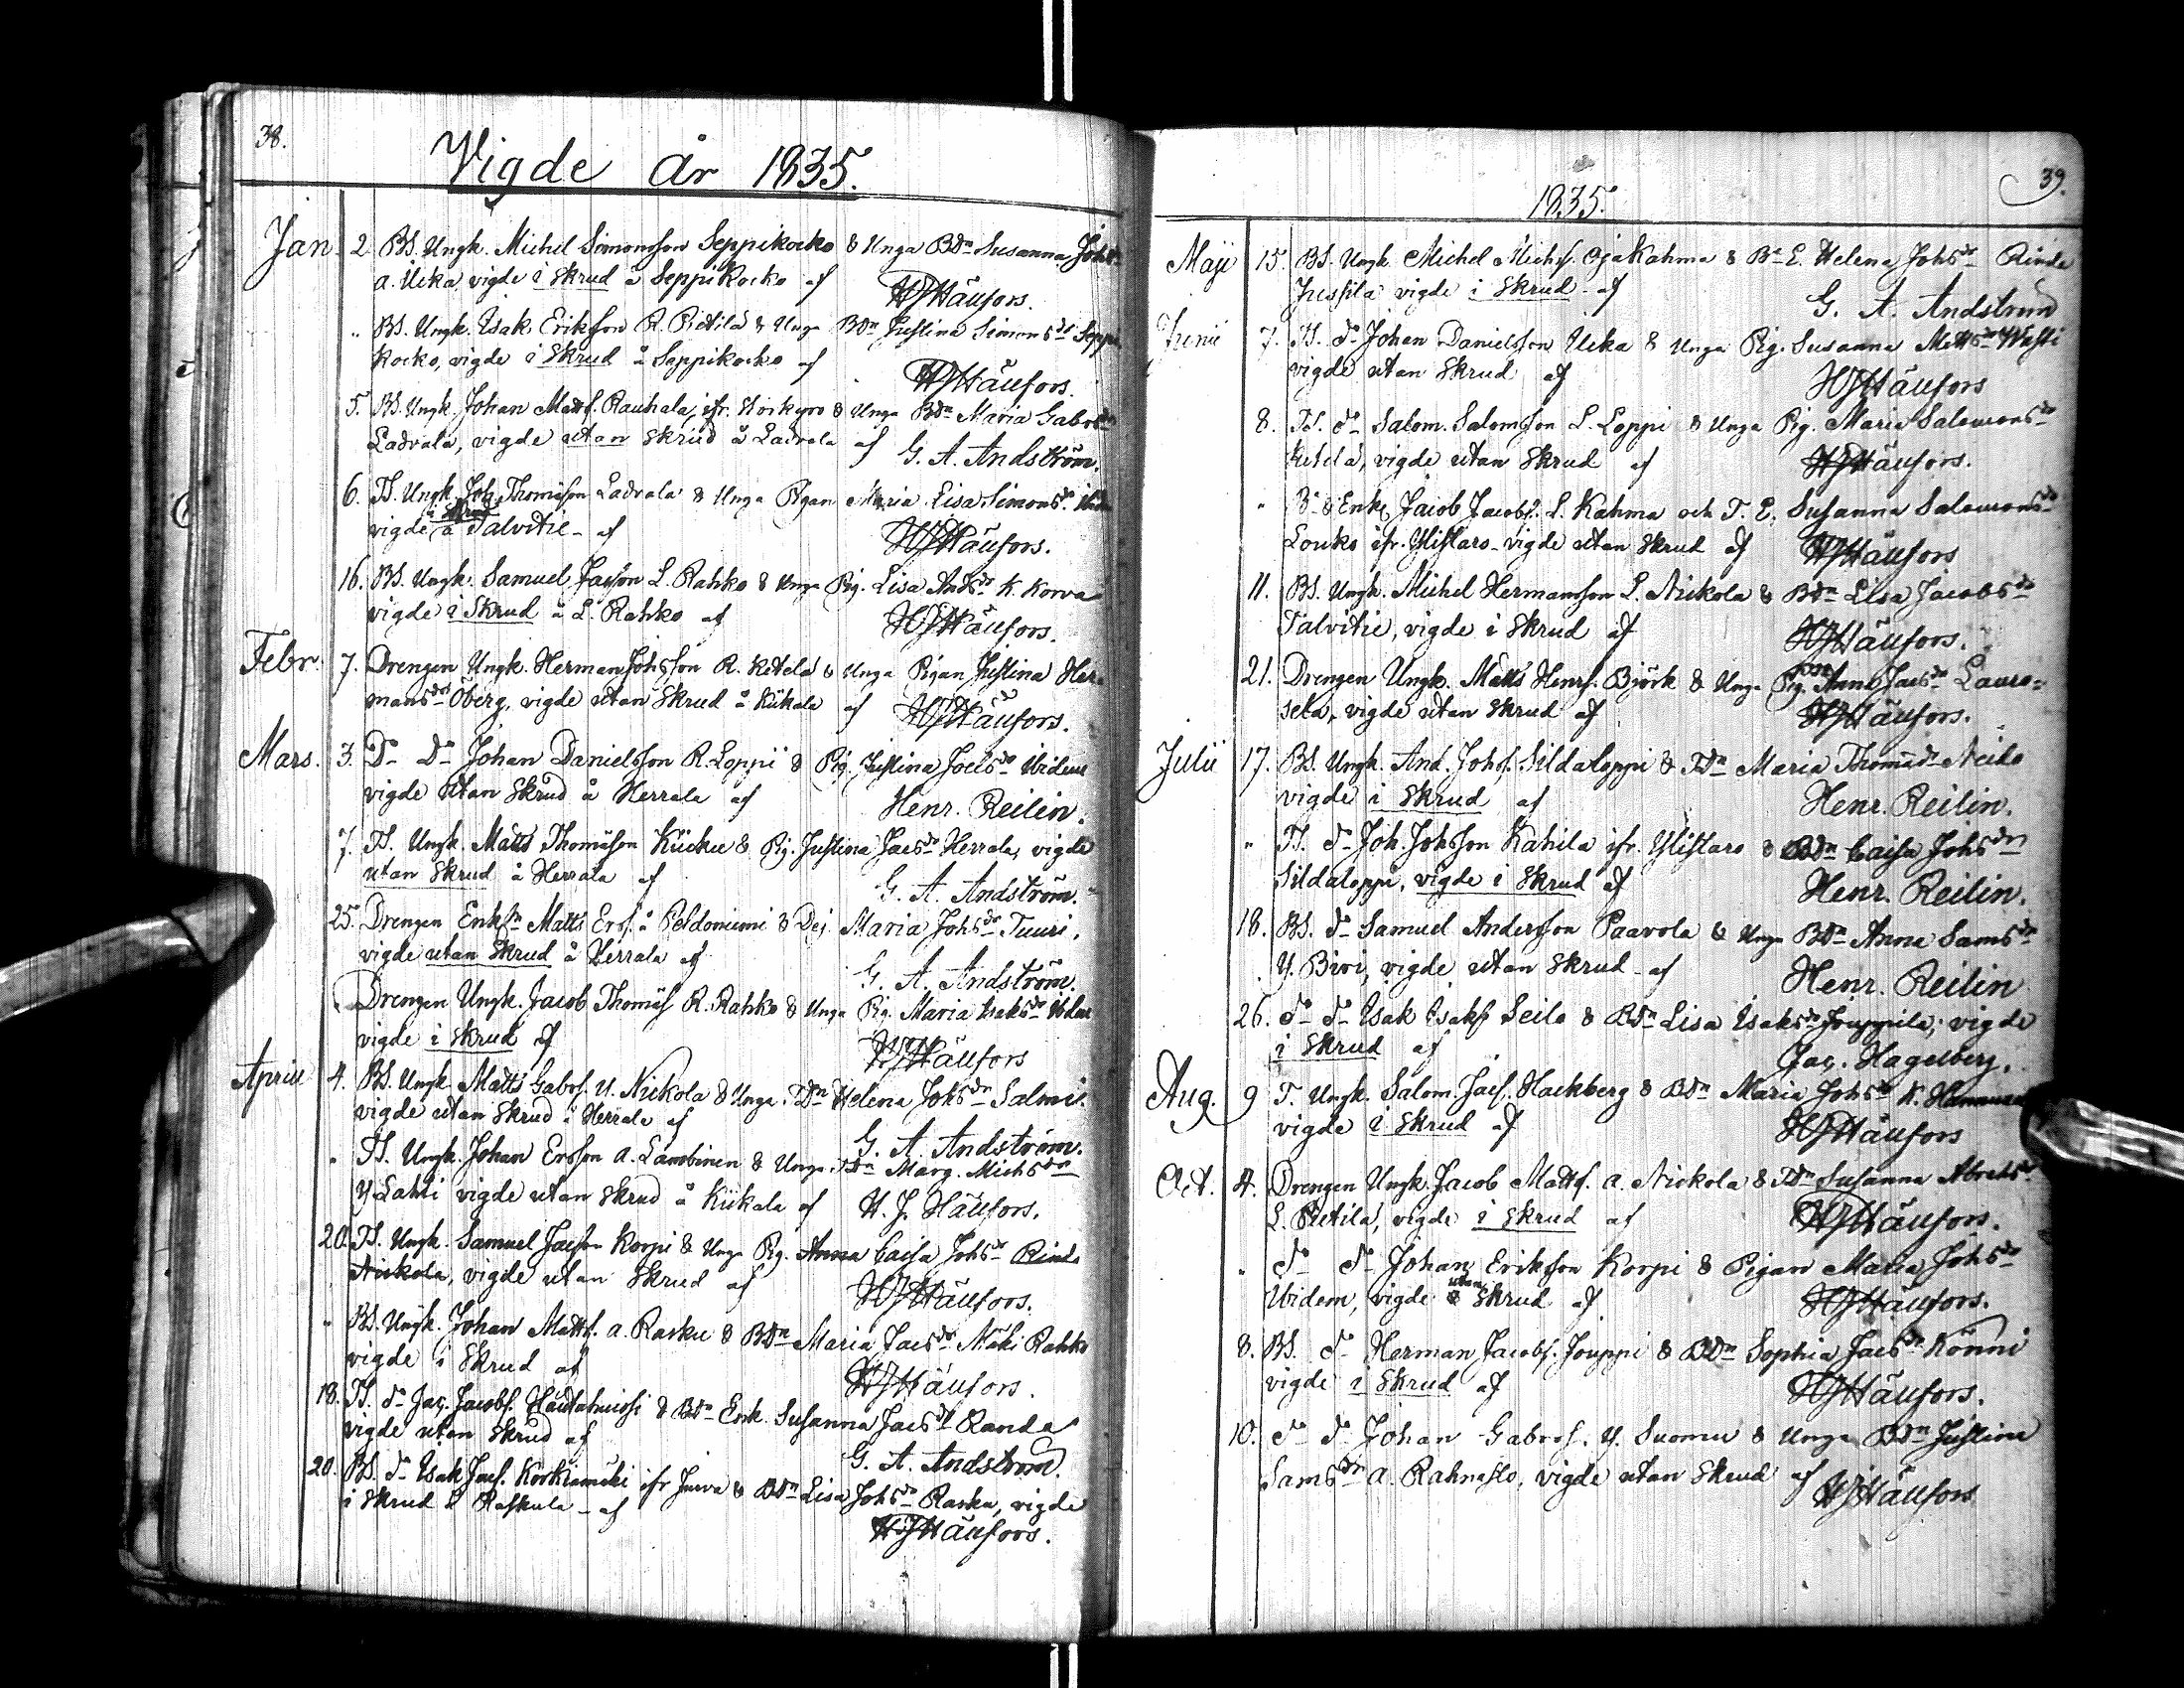 38.
Vigde år 1835.
Jan. 2 BS. Ungk. Michel Simonsson Seppikocko & Unga BDn Susanna Johsdr
a. Ucka, vigde i Skrud å Seppikocko af
HJHäufors.
" BS. Ungk. Isak Eriksson R. Pietilä & Unga BDn Justina Simonsdr Seppi
kocko, vigde i Skrud å Seppikocko af
HJHäufors.
5. BS. Ungk. Johan Mattss. Rauhala, ifr. Storkyro & Unga BDn Maria Gabrsdr
Ladvala, vigde utan Skrud å Ladvala af
G. A. Andström.
6. TS. Ungk. Joh. Thomasson Ladvala & Unga Pigan Maria Lisa Simonsdr
i Skrud
vigde å Talvitie - af
HJHäufors.
16. BS. Ungk. Samuel Jacsson L. Rahko & Unga Pig. Lisa Andsdr K. Korva
vigde i Skrud å L. Rahko af
HJHäufors.
Febr. 7. Drengen Ungk. Herman Johsson R. Ketela & Unga Pigan Justina Her-
mansdr Öberg, vigde utan Skrud å Kiikala af
HJHäufors.
Mars. 3. Do Do Johan Danielsson R. Loppi & Pig. Justina Joelsdr Ibidem
vigde utan Skrud å Herrala af
Henr. Reilin.
7. TS. Ungk. Matts Thomasson Kiicku & Pig. Justina Jacsdr Herrala, vigde
utan Skrud å Herrala af
G. A. Andström.
25. Drengen Enkln Matts Erss. å Peldoniemi & Dej. Maria Johsdr Tuuri,
vigde utan Skrud å Herrala af
G. A. Andström.
Drengen Ungk. Jacob Thomass R. Rahko & Unga Pig. Maria Isaksdr Ibdem
vigde i Skrud af
HJHäufors
Aprill 4. BS. Ungk. Matts Gabrss. Y. Nickola & Unga TDn Helena Johsdr Salmi.
vigde utan Skrud i Herrala af
G. A. Andström.
" TS. Ungk. Johan Ersson a. Lambinen & Unga TDn Marg. Michsdr
Y Lahti vigde utan Skrud å Kiikala af
H. J. Häufors.
20. TS. Ungk. Samuel Jacsson Korpi & Unga Pig. Anna Caisa Johsdr Rinda
Nickola, vigde utan Skrud af
HJHäufors.
" BS. Ungk. Johan Mattss. a. Rasku & BDn Maria Jacsdr Mäki Rahko
vigde i Skrud af
HJHäufors.
18. TS. do Jac. Jacobss. & BDn Enk. Susanna Jacsdr Randa
vigde utan Skrud af
G. A. Andström.
20. BS. do Isak Jacss. Korkiamäki ifr Jurva & BDn Lisa Johsdr Rasku, vigde
i Skrud å Raskula - af
HJHäufors.
39.
1835.
Maji 15. BS. Ungk. Michel Michss. Ojakahma & Bd E. Helena Johsdr Rinda
Jussila vigde i Skrud af
G. A. Andström
Junii 7. TS. do Johan Danielsson Ucka & Unga Pig. Susanna Mattsdr
vigde utan Skrud af
HJHäufors
8. TS. do Salom. Salomsson L. Loppi & Unga Pig. Maria Salomonsdr
Ketela, vigde utan Skrud af
HJHäufors.
" Bd Enkl Jacob Jacobss. L. Kahma och T. E. Susanna Salomonsdr
Louko ifr. Ylistaro - vigde utan Skrud af
HJHäufors
11. BS. Ungk. Michel Hermansson L. Nickola & BDn Lisa Jacobsdr
Talvitie, vigde i Skrud af
HJHäufors.
21. Drengen Ungk. Matts Henrss. Björk & Unga Pig. Anna Jacsdr Lauro=
sela, vigde utan Skrud af
HJHäufors.
Julii 17. BS. Ungk. And. Johss. Sildaloppi & TDn Maria Thomasdr Neiko
vigde i Skrud af
Henr. Reilin.
" TS. do Joh. Johsson Kahila ifr. Ylistaro & BDn Caisa Johsdr
Sildaloppi, vigde i Skrud af
Henr. Reilin.
18. BS. do Samuel Andersson Paavola & Unga BDn Anna Samsdr
Y. Biri, vigde utan Skrud - af
Henr. Reilin
26. do do Isak Isakss Seilo & BDn Lisa Isaksdr Jouppila, vigde
i Skrud af
Jac. Hagelberg.
Aug. 9 T. Ungk. Salom. Jacss. Hackberg & BDn Maria Johsdr K.
vigde i Skrud af
HJHäufors
Oct. 4. Drengen Ungk. Jacob Mattss. a. Nickola & TDn Susanna Abrahsdr
L. Pietilä, vigde i Skrud af
HJHäufors.
" do do Johan Eriksson Korpi & Pigan Maria Johsdr
Ibidem, vigde utan Skrud af
HJHäufors.
8. BS. do Herman Jacobss. Jouppi & BDn Sophia Jacsdr Könni
vigde i Skrud af
HJHäufors.
10. do do Johan Gabrss. Y. Suomu & Unga BDn Justina
Samsdr a. Rahnasto, vigde utan Skrud af
HJHäufors